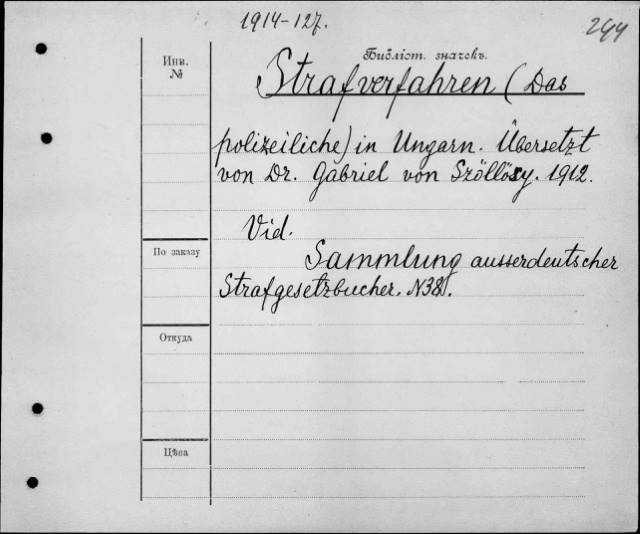 1914-127.
244
Инв.
№
Библіот. значекъ.
Strafverfahren (Das
polizeiliche) in Ungarn. Übersetzt
von Dr. Gabriel von Szöllösy. 1912.
Vid.
По заказу
Sammlung ausserdeutscher
Strafgesetzbucher. N38.
Откуда
Цѣна